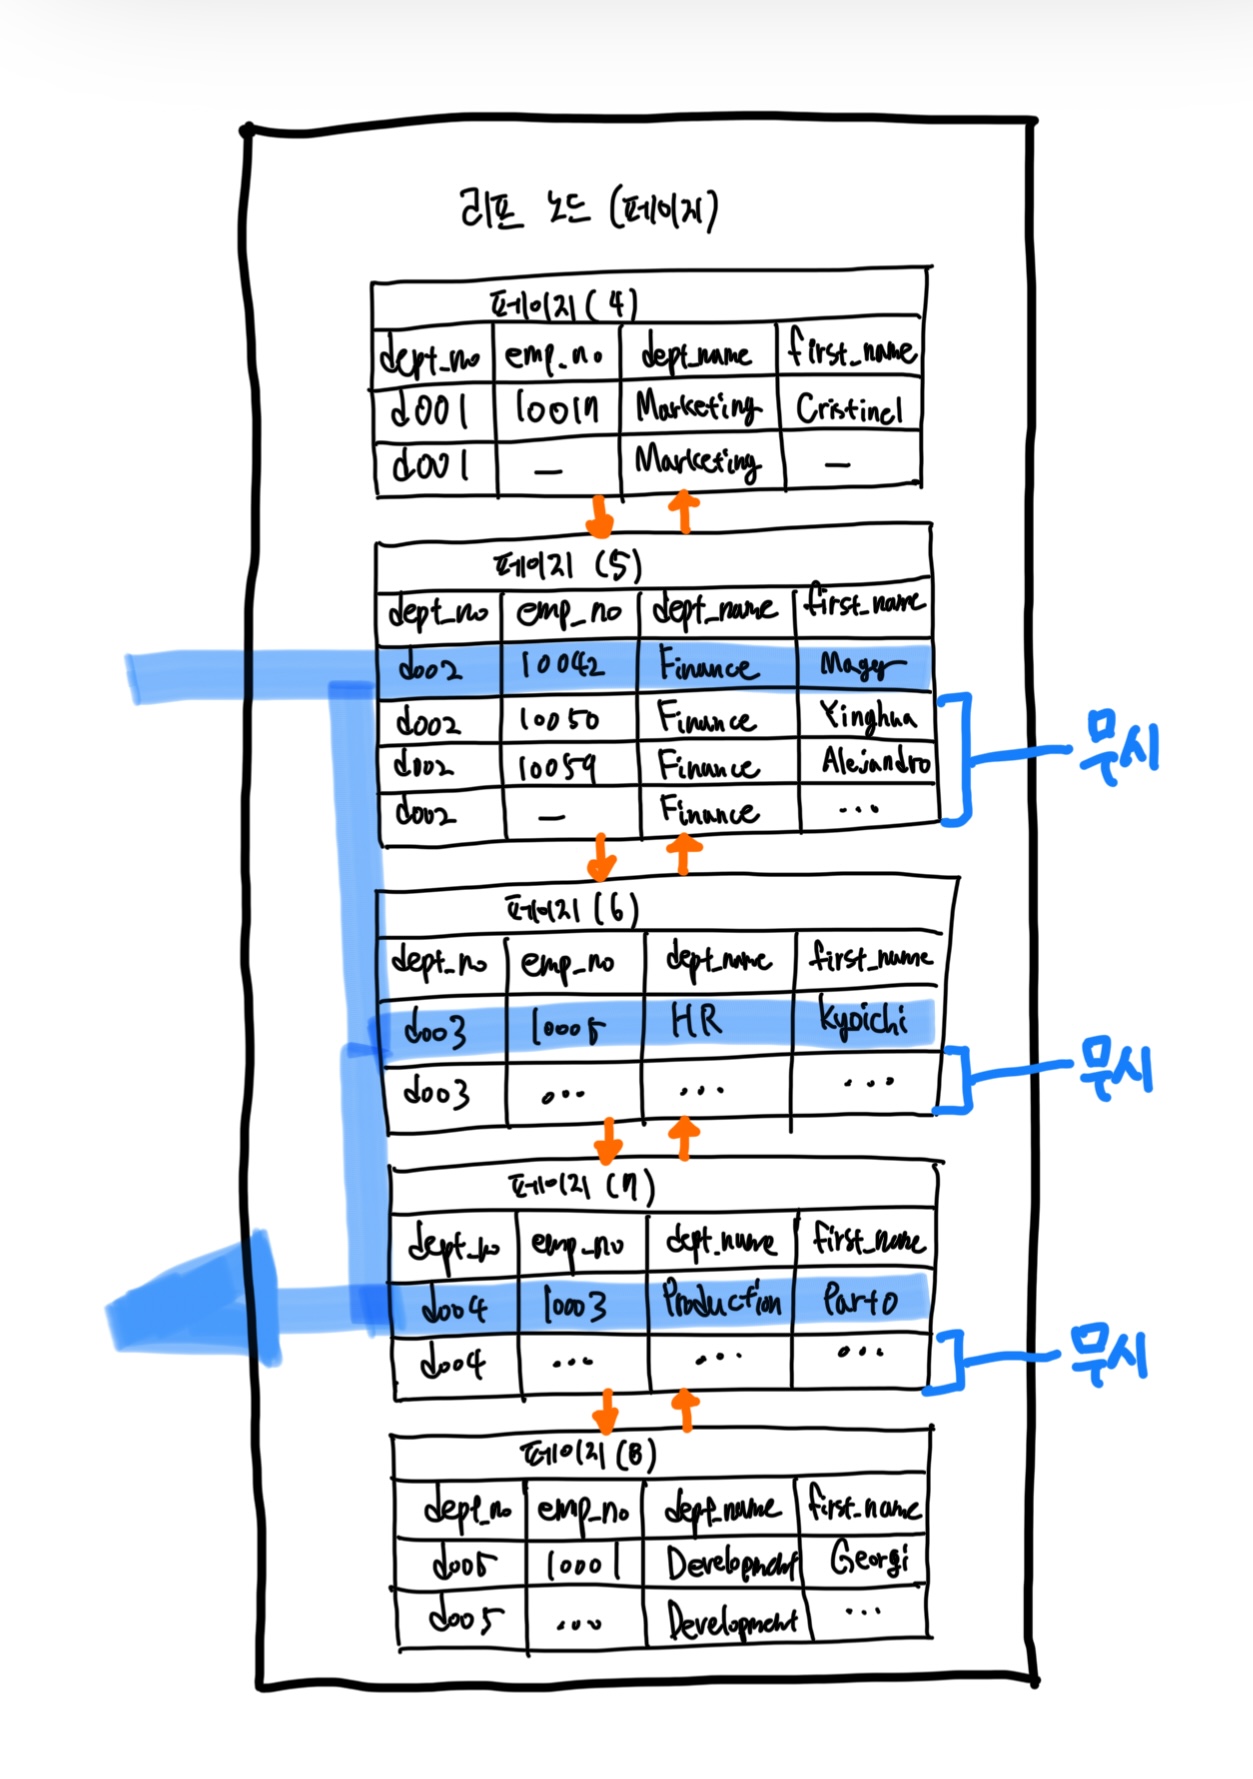 리프 노드 (페이지)
페이지 (4)
dept_no emp_no dept_name first_name
d001 10017 Marketing Cristinel
d001 — Marketing —
페이지 (5)
dept_no emp_no dept_name first_name
d002 10042 Finance Magy
d002 10050 Finance Yinghua
무시
d002 10059 Finance Alejandro
d002 — Finance ...
페이지 (6)
dept_no emp_no dept_name first_name
d003 10005 HR Kyoichi
d003 ... ... ...
무시
페이지 (7)
dept_no emp_no dept_name first_name
d004 10003 Production Parto
d004 ... ... ...
무시
페이지 (8)
dept_no emp_no dept_name first_name
d005 10001 Development Georgi
d005 ... Development ...